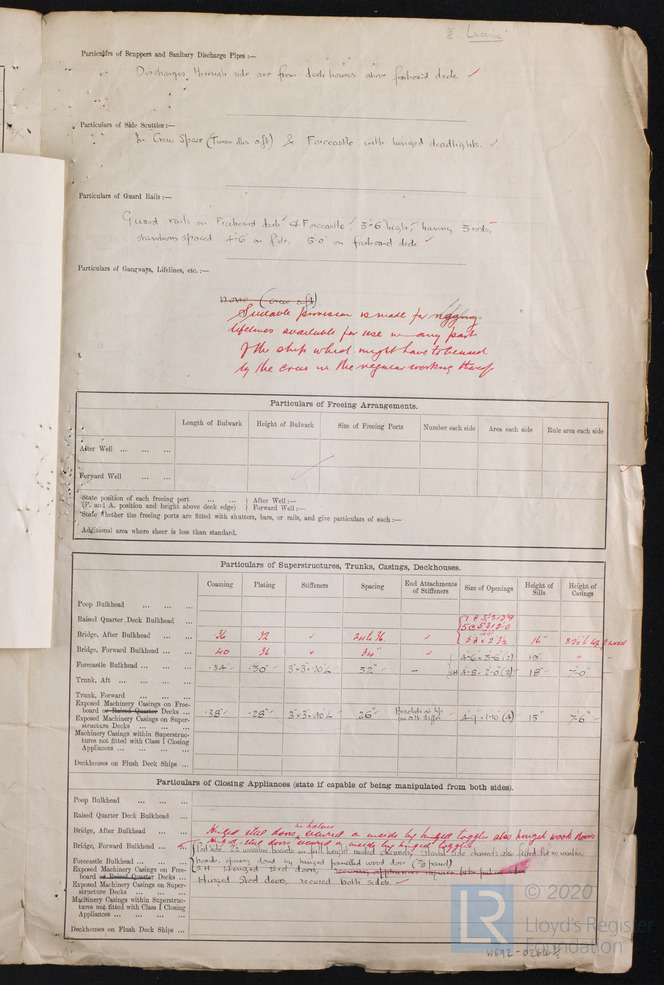 "Laurie"
Particulars of Scuppers and Sanitary Discharge Pipes :—
Discharges through side are from deck houses above freeboard deck ✓
Particulars of Side Scuttles :—
In Crew Space & Forecastle with hinged deadlights. ✓
Particulars of Guard Rails :—
Guard rails on Freeboard deck ✓ & Forecastle ✓ 3'-6" high, having 3 rods,
stanchions spaced 4'-6" on 5'-0" on freeboard deck ✓
Particulars of Gangways, Lifelines, etc. :—
none (crew aft)
Suitable provision is made for rigging
lifelines available for use in any part
of the ship which might have to be used
by the crew in the regular working thereof
Particulars of Freeing Arrangements.
Length of Bulwark Height of Bulwark Size of Freeing Ports Number each side Area each side Rule area each side
After Well ... ... ...
Forward Well ... ...
State position of each freeing port ... ... } After Well :—
(F. and A. position and height above deck edge) } Forward Well :—
State whether the freeing ports are fitted with shutters, bars, or rails, and give particulars of such :—
Additional area where sheer is less than standard.
Particulars of Superstructures, Trunks, Casings, Deckhouses.
Coaming Plating Stiffeners Spacing End Attachments of Stiffeners Size of Openings Height of Sills Height of Casings
Poop Bulkhead ... ... ...
Raised Quarter Deck Bulkhead ...
Bridge, After Bulkhead ... ... 36 32 ✓ ✓ 16"
Bridge, Forward Bulkhead ... ... 40 36 ✓ 34" ✓ 4'-6" × 3'-6" (2)
Forecastle Bulkhead ... ... ... .34" .30" 32" — 18" 7'-0"
Trunk, Aft ... ... ... ...
Trunk, Forward ... ... ...
Exposed Machinery Casings on Free-
board or Raised Quarter Decks ... .38" .28" 26" 15" 7'6"
Exposed Machinery Casings on Super-
structure Decks ... ... ...
Machinery Casings within Superstruc-
tures not fitted with Class I Closing
Appliances ... ... ... ...
Deckhouses on Flush Deck Ships ...
Particulars of Closing Appliances (state if capable of being manipulated from both sides).
Poop Bulkhead ... ... ...
Raised Quarter Deck Bulkhead ...
Bridge, After Bulkhead ... ... Hinged steel doors secured on inside by hinged toggles also hinged wood doors
Bridge, Forward Bulkhead ... Hinged steel doors secured on inside by hinged toggles
Forecastle Bulkhead ... ... boards, opening closed by hinged panelled wood door
Exposed Machinery Casings on Free-
board or Raised Quarter Decks ... Hinged steel doors,
Exposed Machinery Casings on Super-
structure Decks ... ... ... Hinged steel doors, secured both sides ✓
Machinery Casings within Superstruc-
tures not fitted with Class I Closing
Appliances ... ... ... ...
Deckhouses on Flush Deck Ships ...
LR
© 2020
Lloyd's Register
Foundation
W692-0264